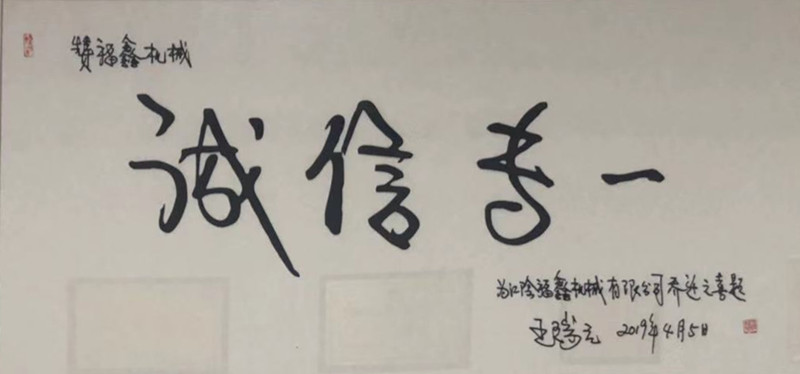 赞福鑫机械
诚信专一
为江阴福鑫机械有限公司乔迁之喜题
王瑞元 2019年4月5日